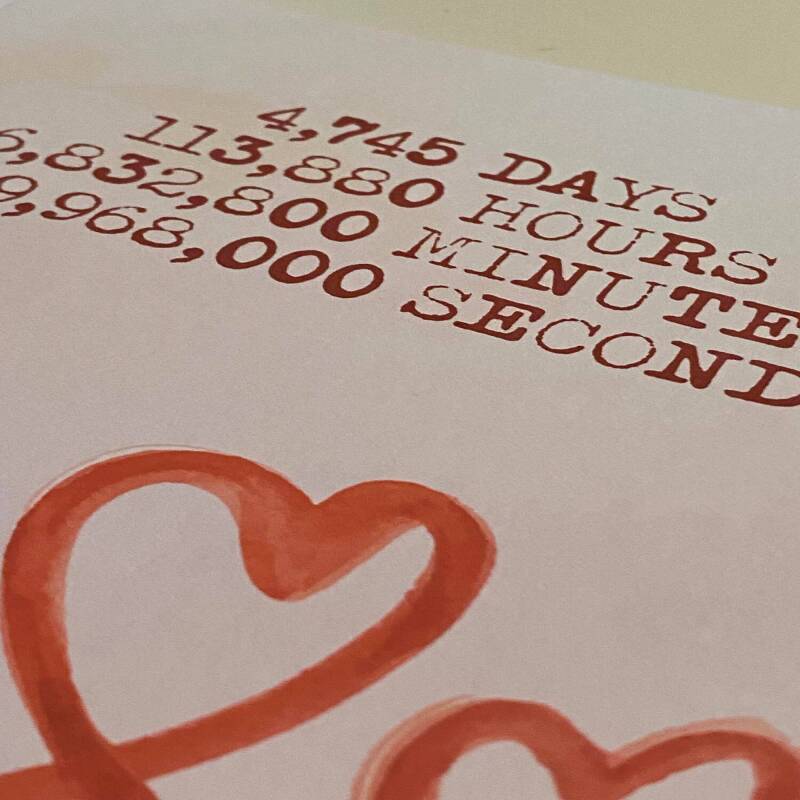 4,745 DAYS
113,880 HOURS
6,832,800 MINUTE
9,968,000 SECOND